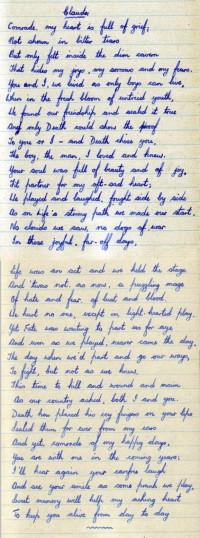 Claude
Comrade, my heart is full of grief,
Not shown in bitter tears
But only felt inside the dim cavern
That hides my joys, my sorrows and my fears.
You and I, we lived as only boys can live,
When in the fresh bloom of untried youth,
We found our friendship and sealed it true
And only Death could show the proof
To you or I - and Death chose you.
The boy, the man, I loved and knew.
Your soul was full of beauty and of joy,
Fit partner for my oft-sad heart;
We played and laughed, fought side by side
As on life's stormy path we made our start.
No clouds we saw, no dogs of war
In those joyful, far-off days.
Life was an act and we held the stage
And 'twas not, as now, a puzzling maze
Of hate and fear, of lust and blood.
We hurt no one, except in light hearted play.
Yet Fate was waiting to part us for aye
And even as we played, nearer came the day,
The day when we'd part and go our ways,
To fight, but not as we knew.
This time to kill and wound and maim
As our country asked, both I and you.
Death has placed his icy fingers on your lips
Sealed them for ever from my ears
And yet, comrade of my happy days,
You are with me in the coming years;
I'll hear again your carefree laugh
And see your smile as some prank we play,
Sweet memory will help my aching heart
To keep you alive from day to day